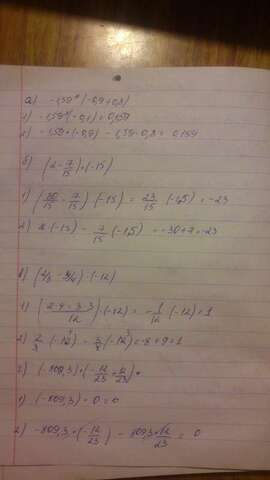 а) -1,59 * (-0,9+0,8)
1) -1,59 * (-0,1) = 0,159
2) -1,59 * (-0,9) - 1,59 · 0,8 = 0,159
б) (2 - 7/15) * (-15)
1) (30/15 - 7/15) · (-15) = 23/15 · (-15) = -23
2) 2 · (-15) - 7/15 · (-15) = -30+7 = -23
в) (2/3 - 3/4) · (-12)
1) (2·4 - 3·3/12) · (-12) = -1/12 · (-12) = 1
2) 2/3 · (-12) - 3/4 · (-12) = -8+9 = 1
г) (-809,3) * (-12/23 + 12/23) =
1) (-809,3) · 0 = 0
2) -809,3 * (-12/23) - 809,3 * 12/23 = 0